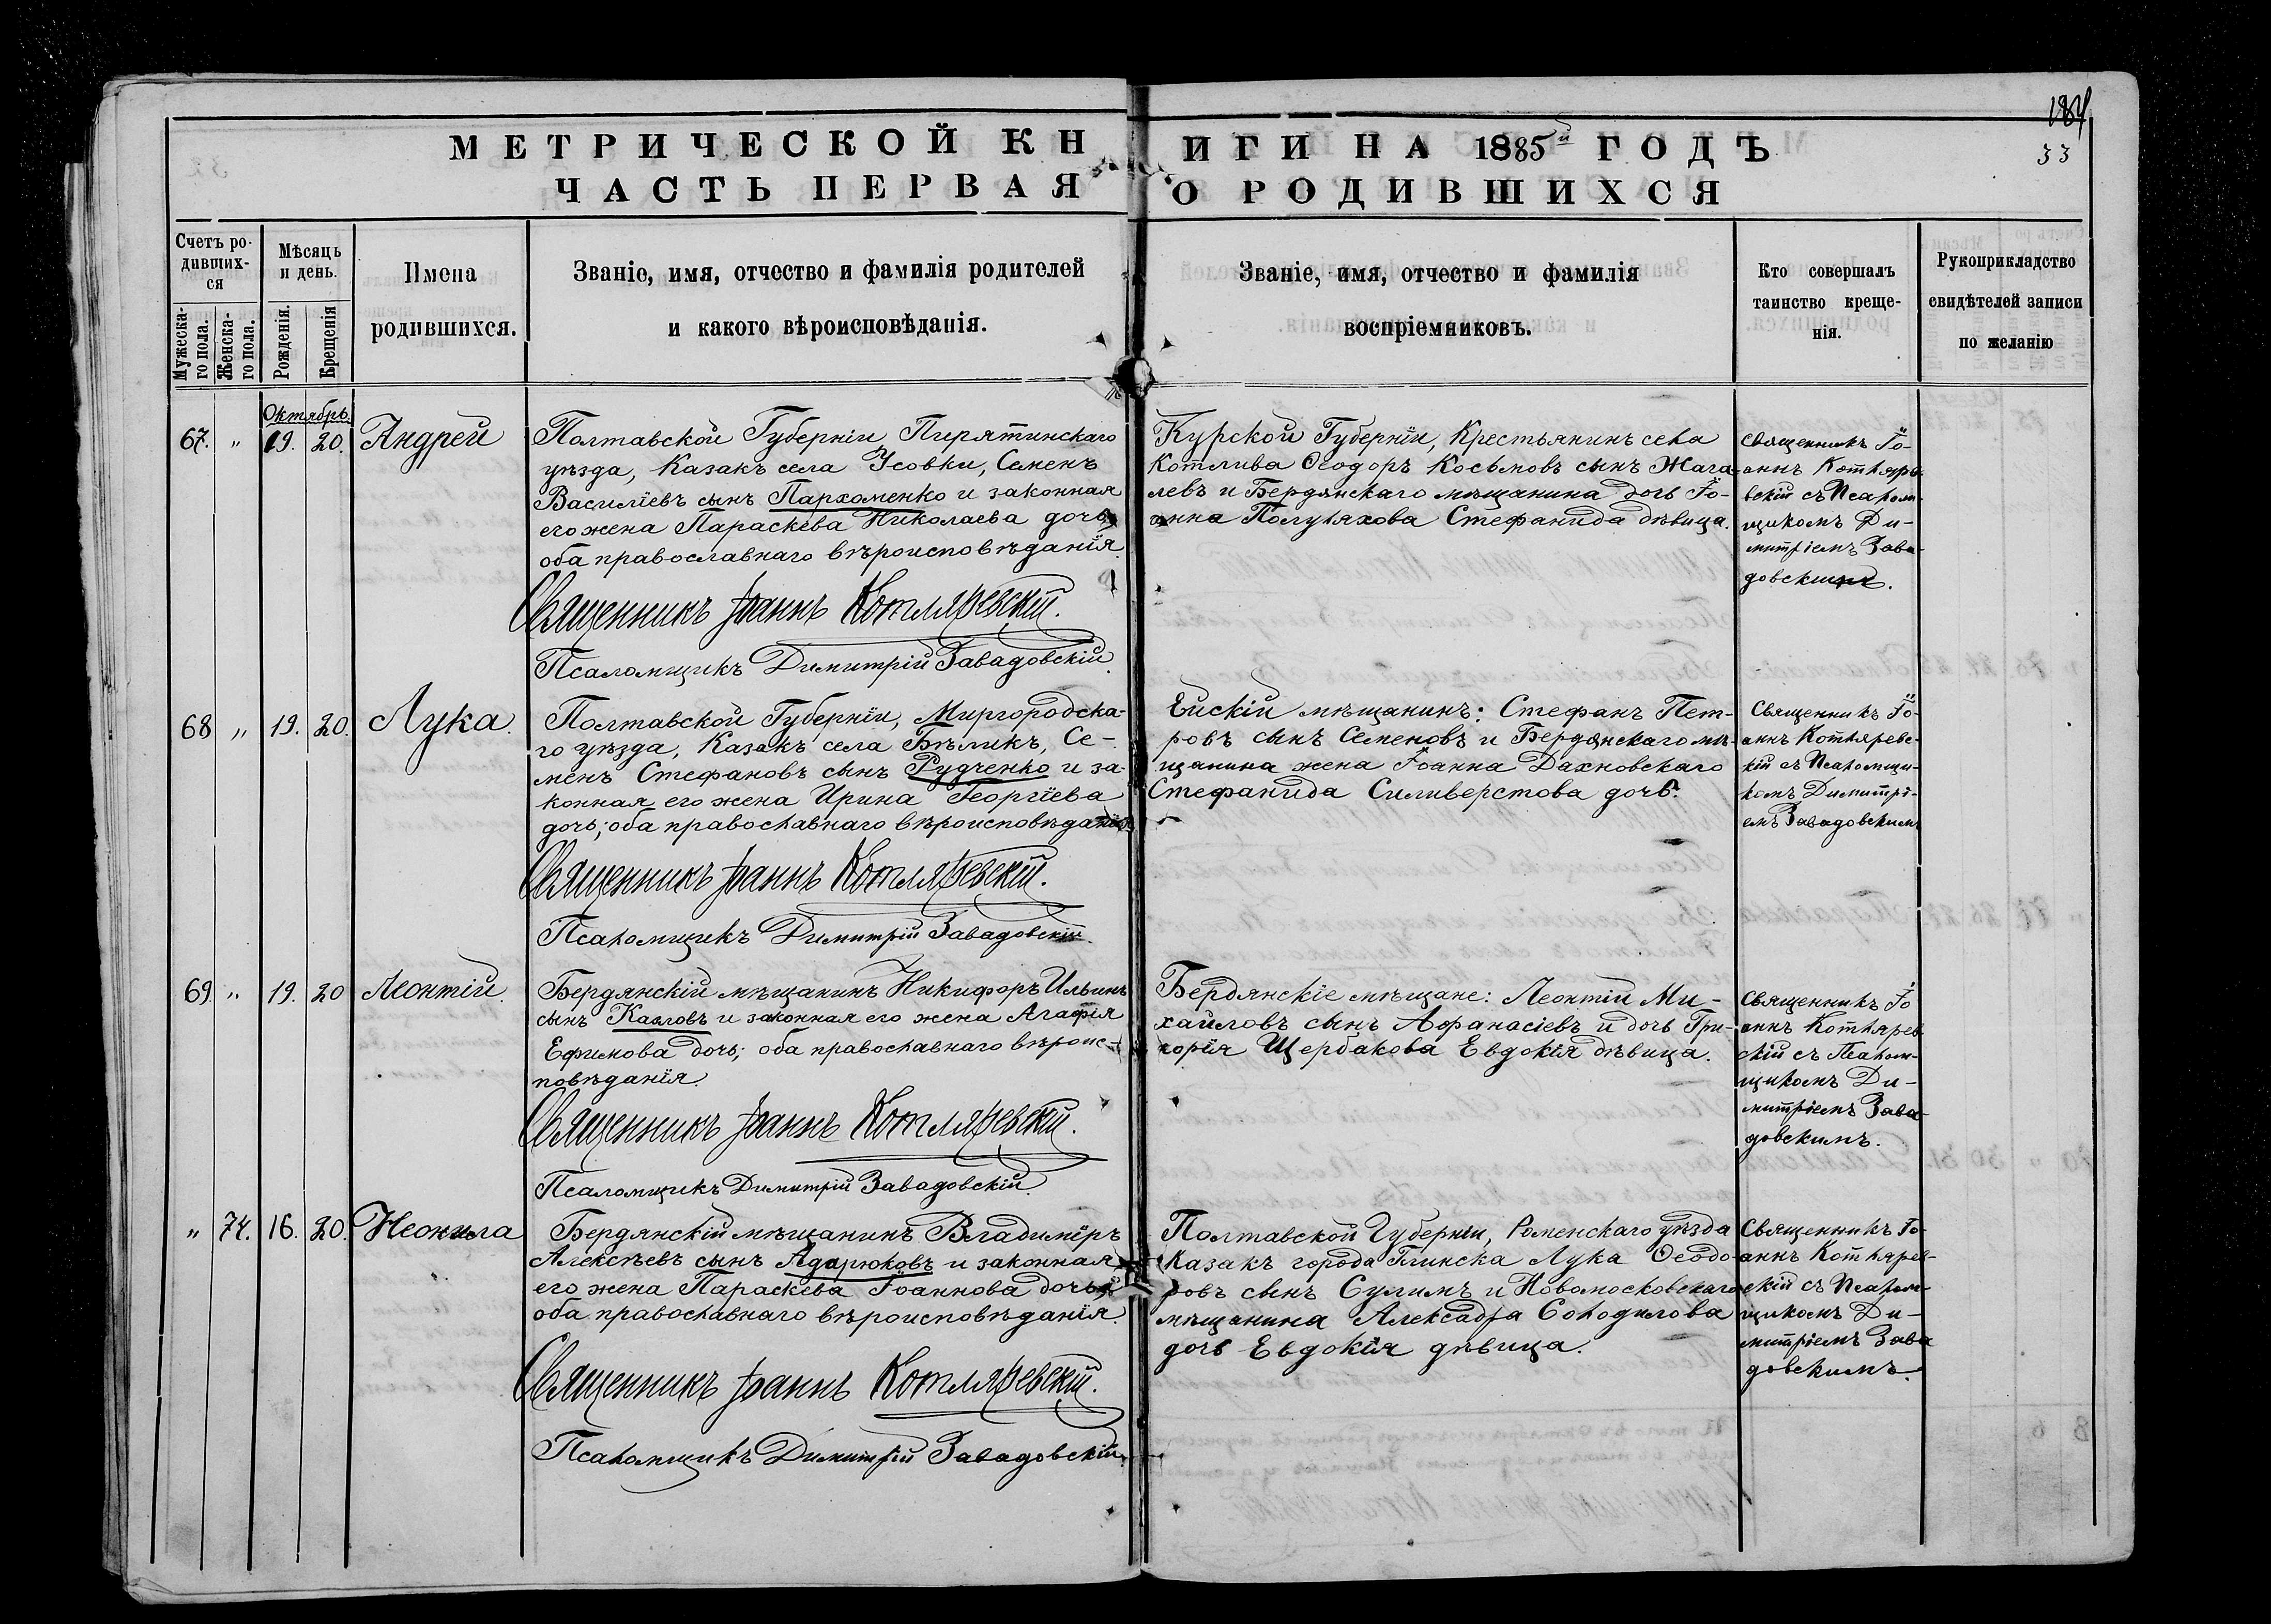 184
33
МЕТРИЧЕСКОЙ КНИГИ НА 1885й ГОДЪ
ЧАСТЬ ПЕРВАЯ О РОДИВШИХСЯ
Счетъ ро-
дивших-
ся
Мужеска-
го пола.
Женска-
го пола.
Мѣсяцъ
и день.
Рожденія.
Крещенія
Имена
родившихся.
Званіе, имя, отчество и фамилія родителей
и какого вѣроисповѣданія.
Званіе, имя, отчество и фамилія
воспріемниковъ.
Кто совершалъ
таинство креще-
нія.
Рукоприкладство
свидѣтелей записи
по желанію
Октябрь.
67. " 19. 20. Андрей
Полтавской Губерніи Пирятинскаго
уѣзда, Казакъ села Усовки, Семенъ
Василіевъ сынъ Пархоменко и законная
его жена Параскева Николаева дочь
оба православнаго вѣроисповѣданія.
Священникъ Іоаннъ Котляревскій.
Псаломщикъ Димитрій Завадовскій.
Курской Губерніи, Крестьянинъ села
Котлива Ѳеодоръ Косьмовъ сынъ Жага-
левъ и Бердянскаго мѣщанина дочь Іо-
анна Полуляхова Стефанида дѣвица.
Священникъ Іо-
аннъ Котляре-
вскій съ Псалом-
щикомъ Ди-
митріемъ Зава-
довскимъ.
68 " 19. 20. Лука.
Полтавской Губерніи, Миргородска-
го уѣзда, Казакъ села Бѣликъ, Се-
менъ Стефановъ сынъ Рудченко и за-
конная его жена Ирина Георгіева
дочь; оба православнаго вѣроисповѣданія
Священникъ Іоаннъ Котляревскій.
Псаломщикъ Димитрій Завадовскій.
Ейскій мѣщанинъ: Стефанъ Пет-
ровъ сынъ Семеновъ и Бердянскаго мѣ-
щанина жена Іоанна Дахновскаго
Стефанида Силиверстова дочь.
Священникъ Іо-
аннъ Котляревс-
кій съ Псаломщи-
комъ Димитрі-
емъ Завадовскимъ
69. " 19. 20 Леонтій.
Бердянскій мѣщанинъ Никифоръ Ильинъ
сынъ Казловъ и законная его жена Агафія
Ефимова дочь; оба православнаго вѣроис-
повѣданія.
Священникъ Іоаннъ Котляревскій.
Псаломщикъ Димитрій Завадовскій.
Бердянскіе мѣщане: Леонтій Ми-
хайловъ сынъ Афанасіевъ и дочь Гри-
горія Щербакова Евдокія дѣвица.
Священникъ Іо
аннъ Котлярев
скій съ Псалом-
щикомъ Ди-
митріемъ Зава-
довскимъ.
" 74. 16. 20. Неонила
Бердянскій мѣщанинъ Владиміръ
Алексѣевъ сынъ Адарюковъ и законная
его жена Параскева Іоаннова дочь
оба православнаго вѣроисповѣданія.
Священникъ Іоаннъ Котляревскій.
Псаломщикъ Димитрій Завадовскій.
Полтавской Губерніи, Роменскаго уѣзда
Казакъ города Глинска Лука Ѳеодо-
ровъ сынъ Сулимъ и Новомосковскаго
мѣщанина Алексадра Солодилова
дочь Евдокія дѣвица.
Священникъ Іо-
аннъ Котлярев-
скій съ Псалом-
щикомъ Ди-
митріемъ Зава
довскимъ.